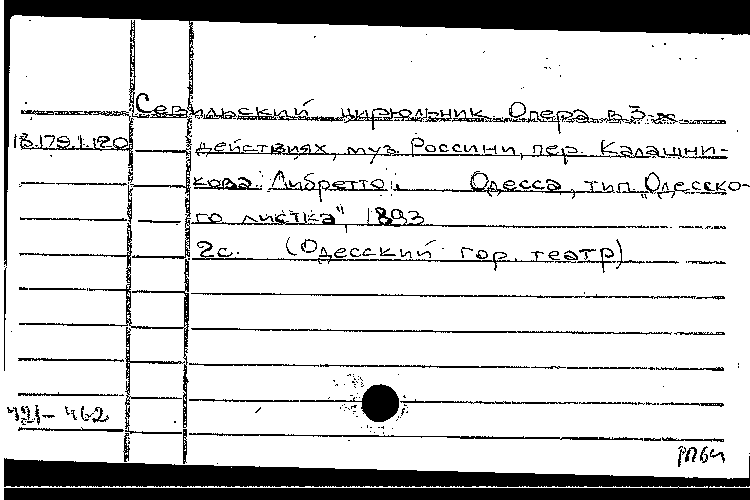 Севильский цирюльник Опера в 3-х
18.179.1.120 действиях, муз Россини, пер. Калашни-
кова. Либретто. Одесса, тип. „Одесско-
го листка", 1893
2с. (Одесский гор. театр)
421-462